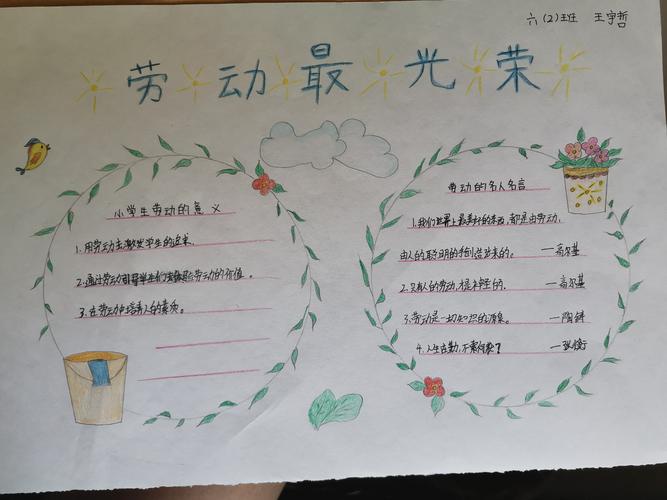 六(2)班 王宇哲
劳动最光荣
小学生劳动的意义
1.用劳动去激发学生的追求。
2.通过劳动引导学生们去体验劳动的价值。
3.在劳动中培养人的素质。
劳动的名人名言
1.我们世界上最美好的东西,都是由劳动、
由人的聪明的手创造出来的。 —高尔基
2.只有人的劳动才是神圣的. —高尔基
3.劳动是一切知识的源泉。 —陶铸
4.人生在勤,不索何获? —张衡